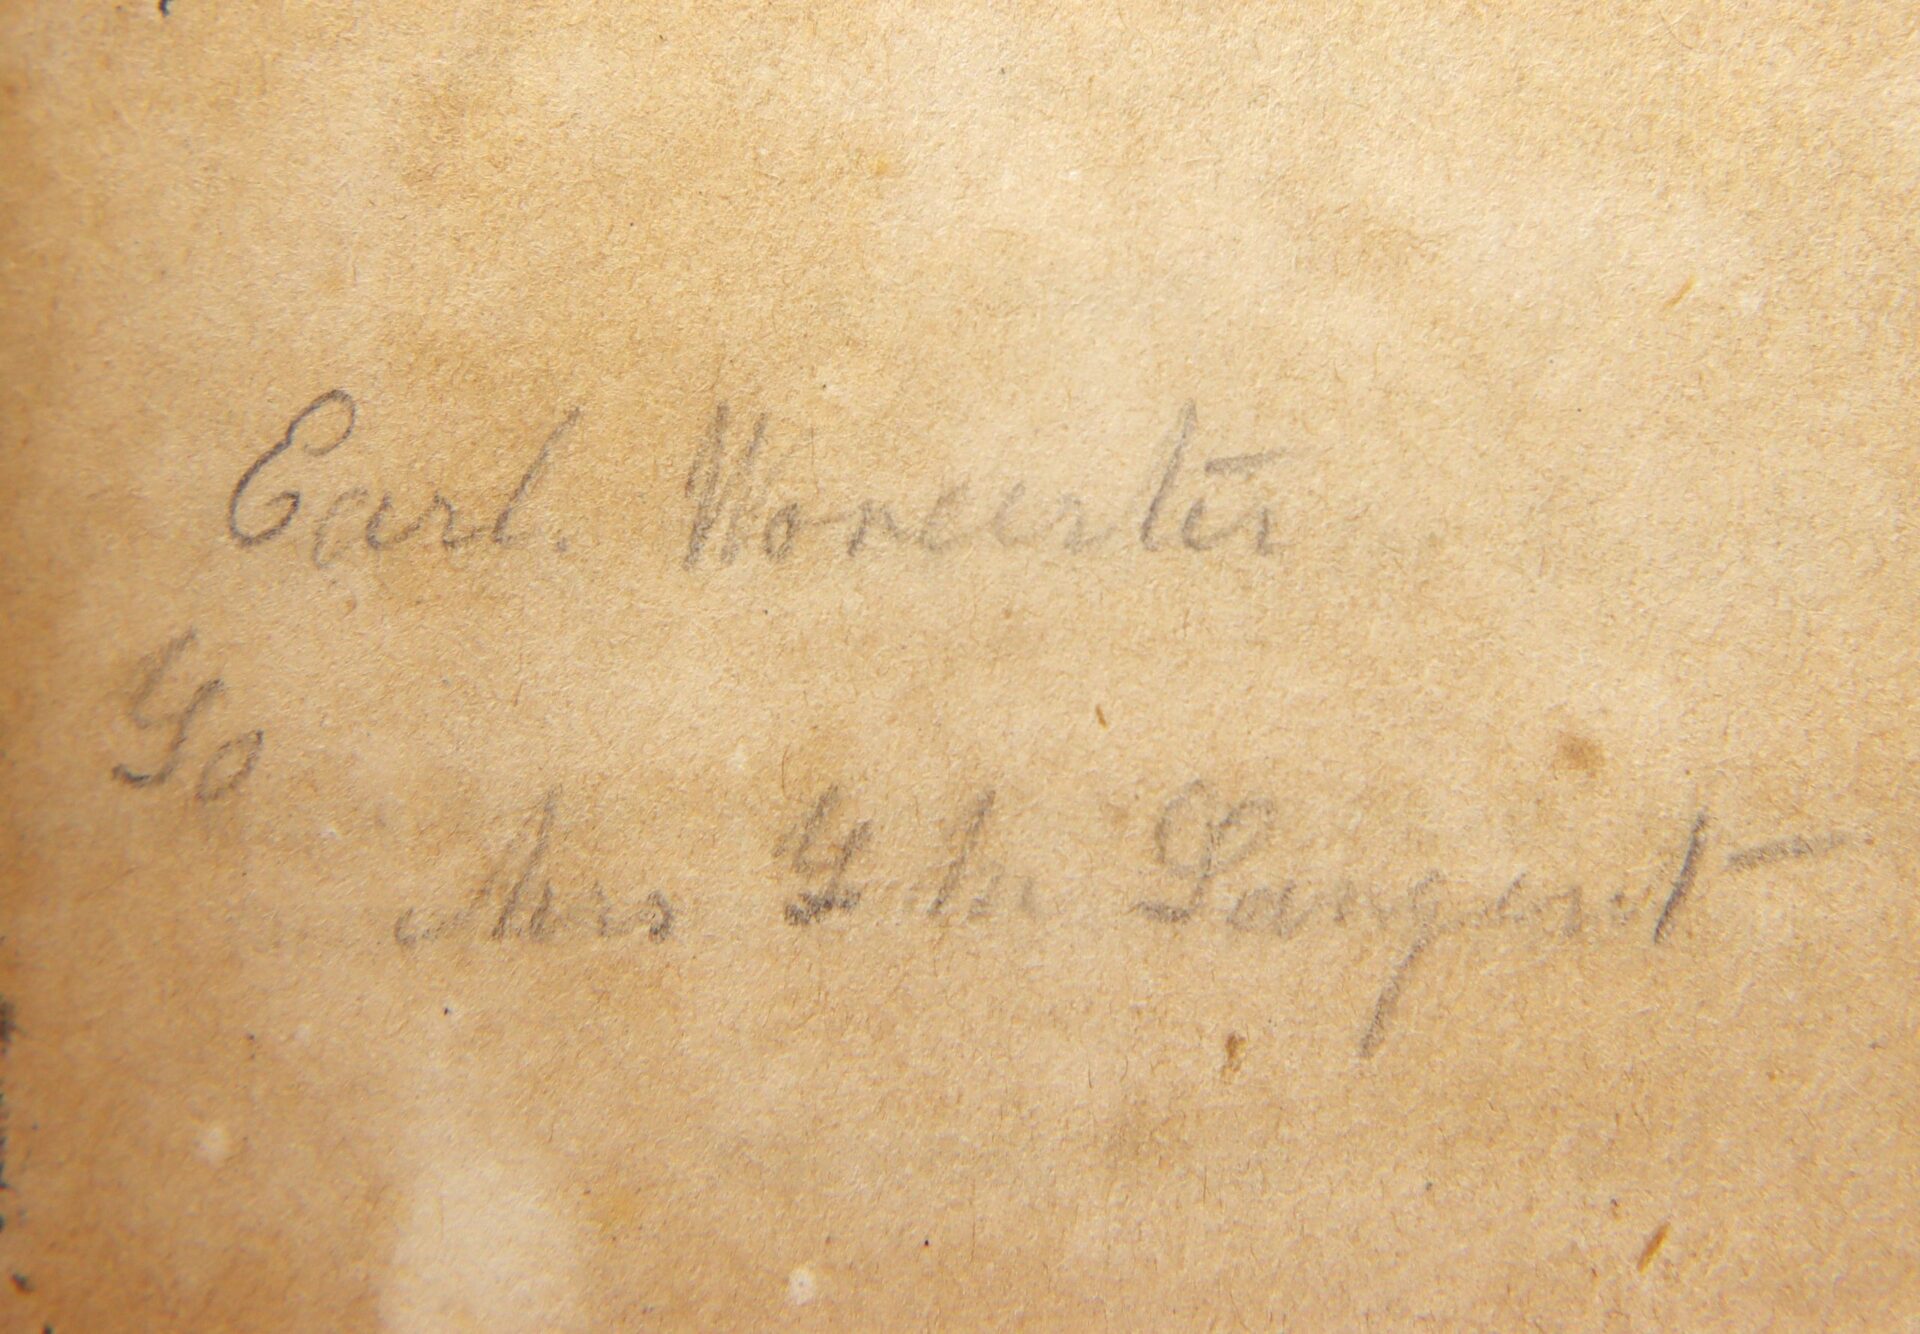 Earl. Worcester
Go
Mrs G M Sargent